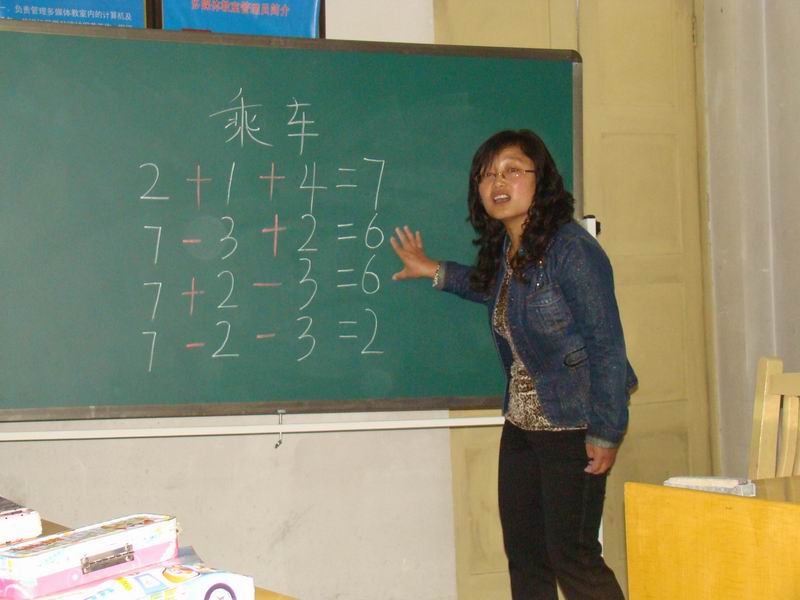 一、负责管理多媒体教室内的计算机及
多媒体教室管理员简介
乘车
2+1+4=7
7-3+2=6
7+2-3=6
7-2-3=2